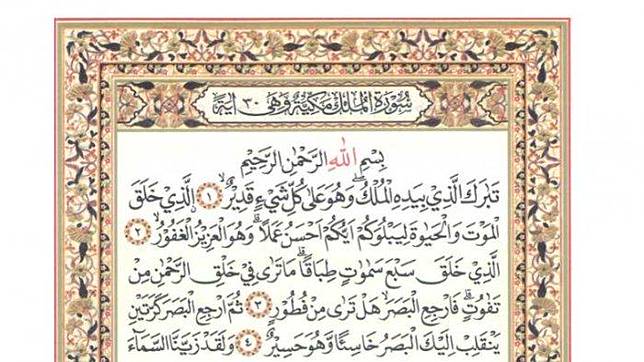 سُورَةُ الْمُلْكِ مَكِّيَّةٌ وَهِيَ ٣٠ اٰيَةً
بِسْمِ اللّٰهِ الرَّحْمٰنِ الرَّحِيمِ
تَبَارَكَ الَّذِي بِيَدِهِ الْمُلْكُۘ وَهُوَ عَلٰى كُلِّ شَيْءٍ قَدِيرٌۙ ﴿١﴾ اَلَّذِي خَلَقَ
الْمَوْتَ وَالْحَيٰوةَ لِيَبْلُوَكُمْ اَيُّكُمْ اَحْسَنُ عَمَلًاۜ وَهُوَ الْعَزِيزُ الْغَفُورُۙ ﴿٢﴾
الَّذِي خَلَقَ سَبْعَ سَمٰوَاتٍ طِبَاقًاۜ مَا تَرٰى فِي خَلْقِ الرَّحْمٰنِ مِنْ
تَفَاوُتٍۜ فَارْجِعِ الْبَصَرَۙ هَلْ تَرٰى مِنْ فُطُورٍ ﴿٣﴾ ثُمَّ ارْجِعِ الْبَصَرَ كَرَّتَيْنِ
يَنْقَلِبْ اِلَيْكَ الْبَصَرُ خَاسِئًا وَهُوَ حَسِيرٌ ﴿٤﴾ وَلَقَدْ زَيَّنَّا السَّمَاءَ